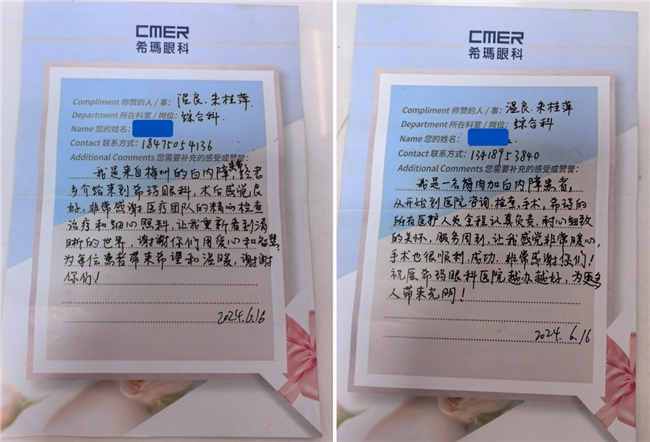 CMER
希瑪眼科
Compliment 称赞的人 / 事：温良、朱桂萍
Department 所在科室 / 岗位：综合科
Name 您的姓名：
Contact 联系方式：18475054136
Additional Comments 您需要补充的感受或赞誉：
我是来自梅州的白内障患者,经老
乡介绍来到希玛眼科，术后感觉良
好，非常感谢医疗团队的精心检查
治疗和细心照料，让我重新看到清
晰的世界，谢谢你们用爱心和智慧
为每位患者带来希望和温暖，谢谢
你们！
2024.6.16
CMER
希瑪眼科
Compliment 称赞的人 / 事：温良、朱桂萍
Department 所在科室 / 岗位：综合科
Name 您的姓名：
Contact 联系方式：13418953840
Additional Comments 您需要补充的感受或赞誉：
我是一名胬肉加白内障患者,
从开始到医院咨询、检查、手术，希玛的
所有医护人员全程认真负责，耐心细致
的关怀，服务周到，让我感觉非常暖心，
手术也很顺利，成功，非常感谢你们！
祝愿希玛眼科医院越办越好，为更多
人带来光明！
2024.6.16